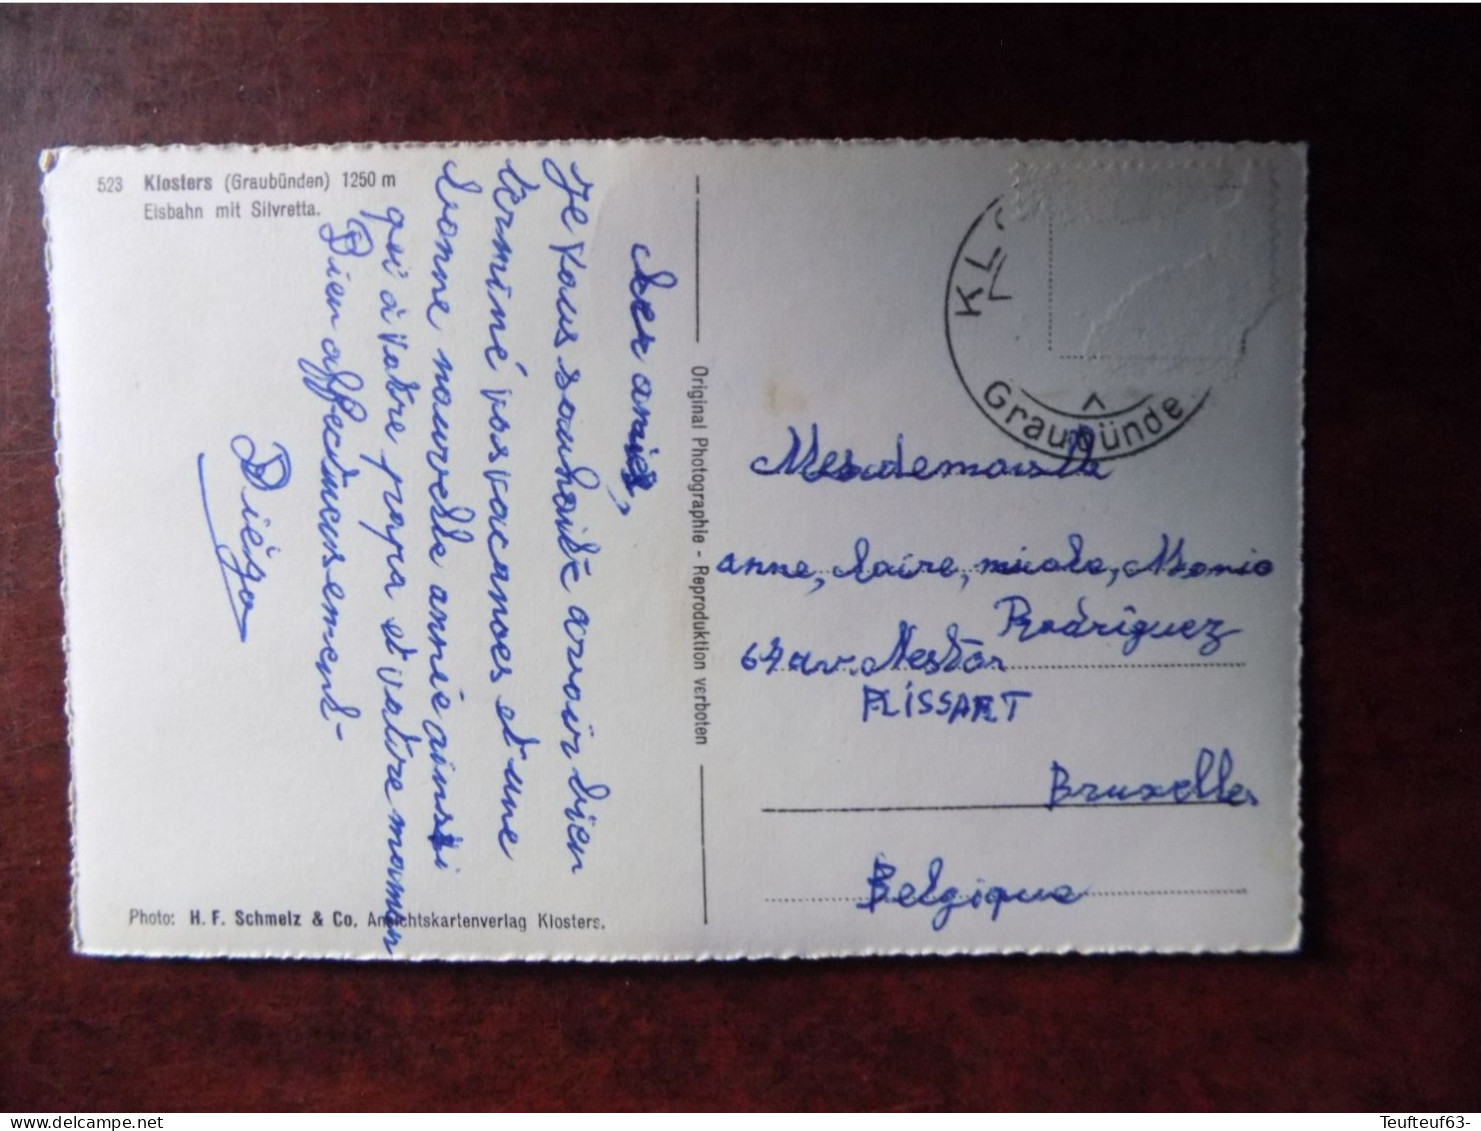 523 Klosters (Graubünden) 1250 m
Eisbahn mit Silvretta.
cher amies,
Je vous souhaite avoir bien
terminé vos vacances et une
bonne nouvelle année ainsi
qui à votre papa et votre maman
Bien affectueusement
Diégo
Photo: H. F. Schmelz & Co. Ansichtskartenverlag Klosters.
Original Photographie - Reproduktion verboten
KL
Graubünde
Mesdemoiselle
anne, claire,
Rodriguez
64 av. Nestor
PLISSART
Bruxelles
Belgique
Teufteuf63-